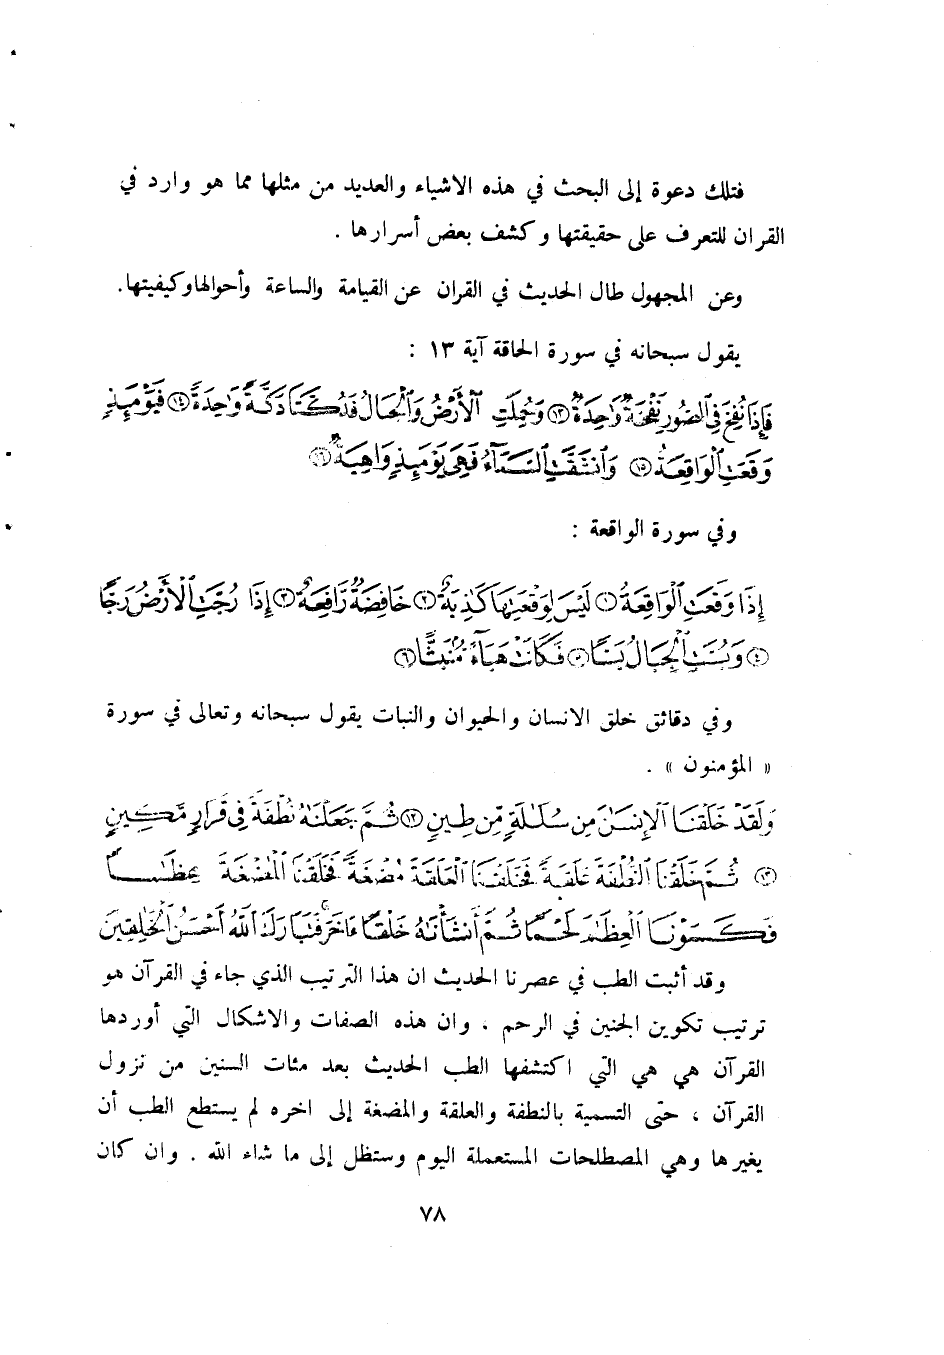 فتلك دعوة إلى البحث في هذه الاشياء والعديد من مثلها مما هو وارد في
القران للتعرف على حقيقتها وكشف بعض أسرارها .
وعن المجهول طال الحديث في القران عن القيامة والساعة وأحوالهاوكيفيتها.
يقول سبحانه في سورة الحاقة آية ١٣ :
فَإِذَا نُفِخَ فِي ٱلصُّورِ نَفْخَةٌ وَٰحِدَةٌ ١٣ وَحُمِلَتِ ٱلْأَرْضُ وَٱلْجِبَالُ فَدُكَّتَا دَكَّةً وَٰحِدَةً ١٤ فَيَوْمَئِذٍ
وَقَعَتِ ٱلْوَاقِعَةُ ١٥ وَٱنشَقَّتِ ٱلسَّمَآءُ فَهِيَ يَوْمَئِذٍ وَاهِيَةٌ ١٦
وفي سورة الواقعة :
إِذَا وَقَعَتِ ٱلْوَاقِعَةُ ١ لَيْسَ لِوَقْعَتِهَا كَاذِبَةٌ ٢ خَافِضَةٌ رَّافِعَةٌ ٣ إِذَا رُجَّتِ ٱلْأَرْضُ رَجًّا
٤ وَبُسَّتِ ٱلْجِبَالُ بَسًّا ٥ فَكَانَتْ هَبَآءً مُّنۢبَثًّا ٦
وفي دقائق خلق الانسان والحيوان والنبات يقول سبحانه وتعالى في سورة
« المؤمنون » .
وَلَقَدْ خَلَقْنَا ٱلْإِنسَٰنَ مِن سُلَٰلَةٍ مِّن طِينٍ ١٢ ثُمَّ جَعَلْنَٰهُ نُطْفَةً فِي قَرَارٍ مَّكِينٍ
١٣ ثُمَّ خَلَقْنَا ٱلنُّطْفَةَ عَلَقَةً فَخَلَقْنَا ٱلْعَلَقَةَ مُضْغَةً فَخَلَقْنَا ٱلْمُضْغَةَ عِظَٰمًا
فَكَسَوْنَا ٱلْعِظَٰمَ لَحْمًا ثُمَّ أَنشَأْنَٰهُ خَلْقًا ءَاخَرَ فَتَبَارَكَ ٱللَّهُ أَحْسَنُ ٱلْخَٰلِقِينَ
وقد أثبت الطب في عصرنا الحديث ان هذا الترتيب الذي جاء في القرآن هو
ترتيب تكوين الجنين في الرحم ، وان هذه الصفات والاشكال التي أوردها
القرآن هي هي التي اكتشفها الطب الحديث بعد مئات السنين من نزول
القرآن ، حتى التسمية بالنطفة والعلقة والمضغة إلى اخره لم يستطع الطب أن
يغيرها وهي المصطلحات المستعملة اليوم وستظل إلى ما شاء الله . وان كان
٧٨